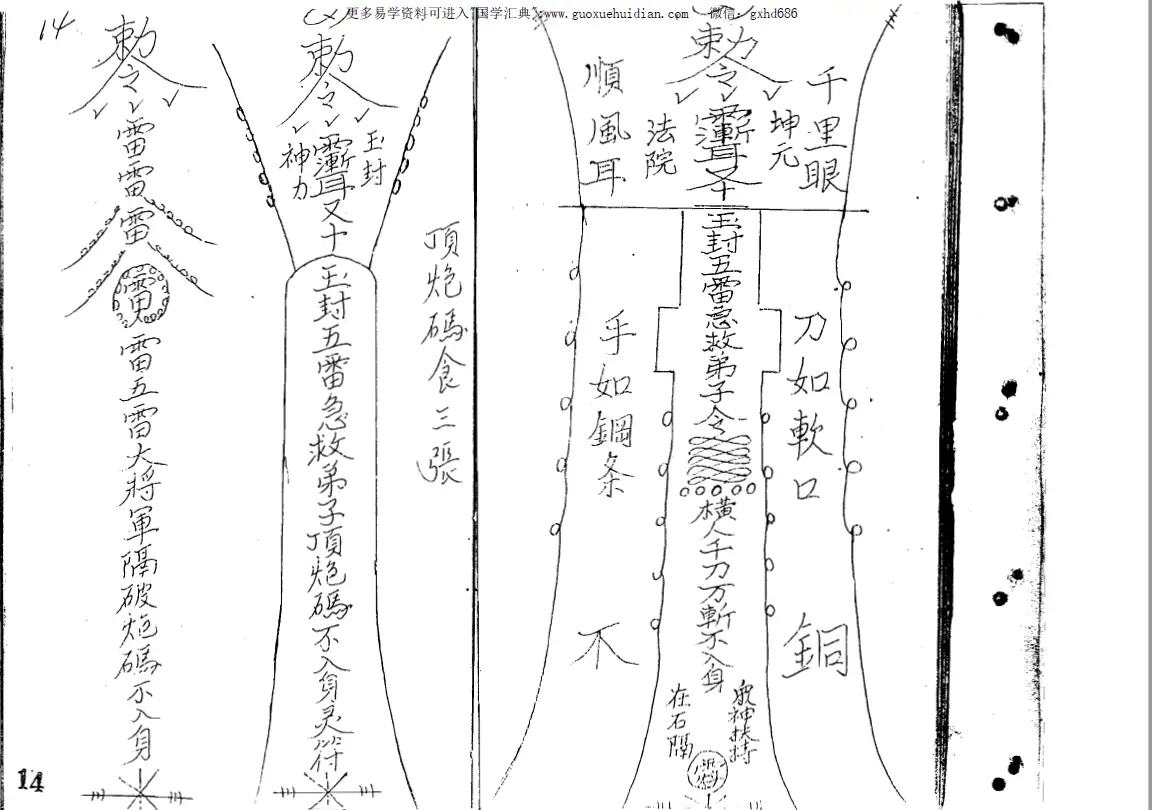 更多易学资料可进入"国学汇典":www.guoxuehuidian.com 微信：gxhd686
14
勅令
雷雷雷
雷五雷大將軍隔破炮碼不入身
勅令
玉封
神力
又十
玉封五雷急救弟子頂炮碼不入身灵符
頂炮碼食三張
勅令
千里眼
順風耳
坤元
法院
玉封五雷急救弟子令
橫人千刀万斬不入身
刀如軟口
手如鋼条
銅
不
眾神扶持
在石隔
14